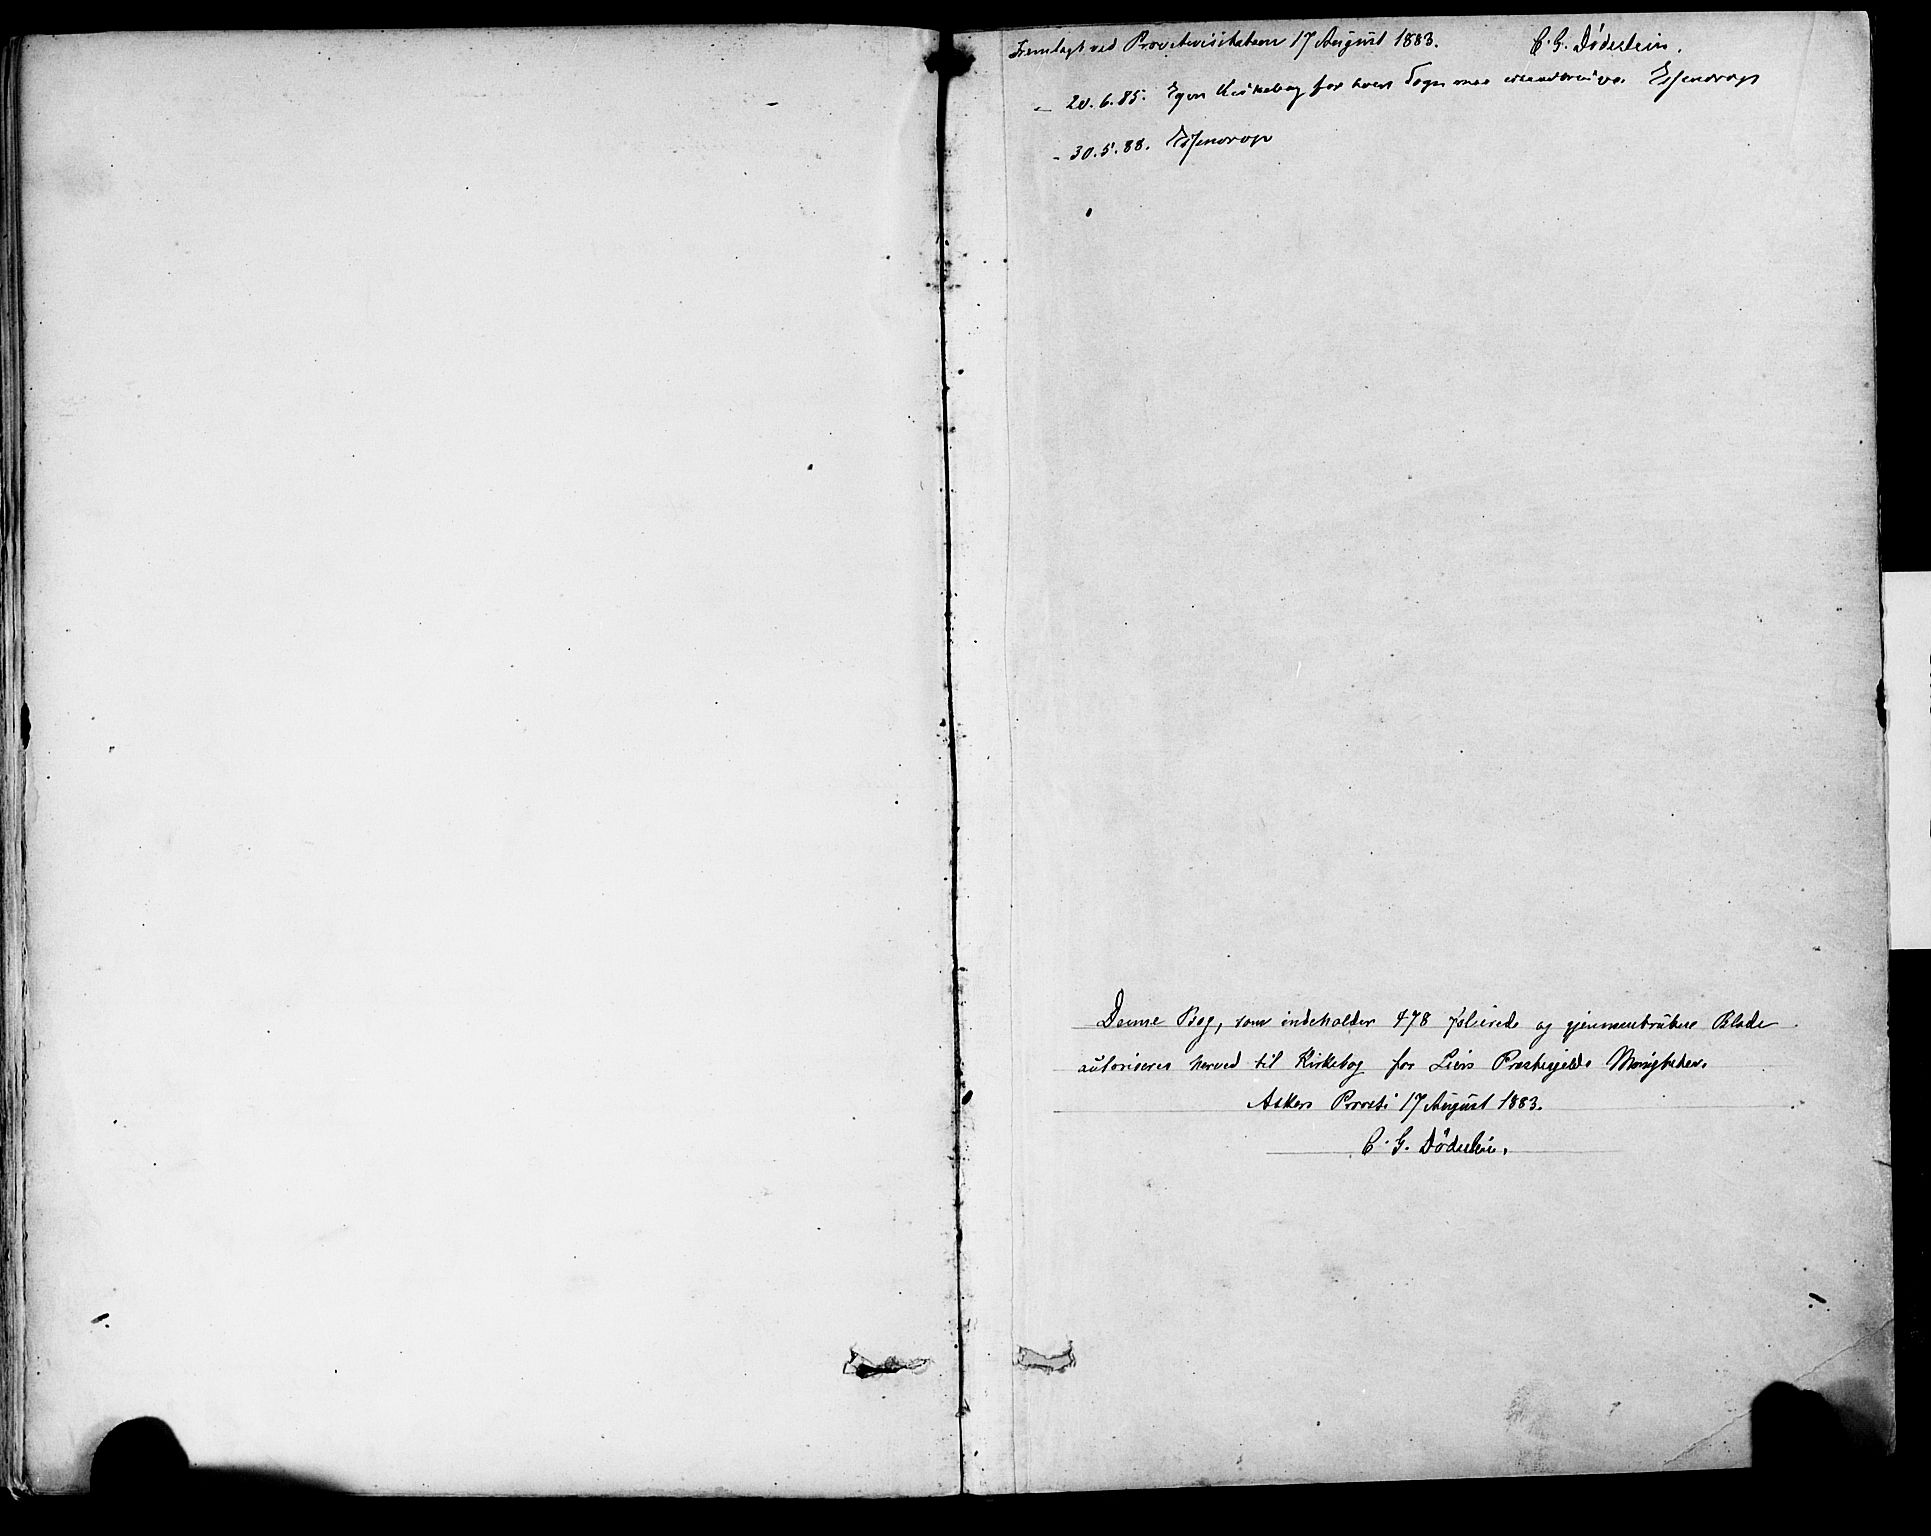 Fremlagt ved Provstevisitatsen 17 August 1883. C. G. Döderlein.
- 20.6.85. Egen Kirkebog for hvert Sogn maa Essendrop
- 30.5.88. Essendrop
Denne Bog, som indeholder 478 folierede og gjennemtrukne Blade
autoriseres herved til Kirkebog for Liers Præstegjelds Menigheder.
Askers Provsti 17 August 1883.
C. G. Döderlein.